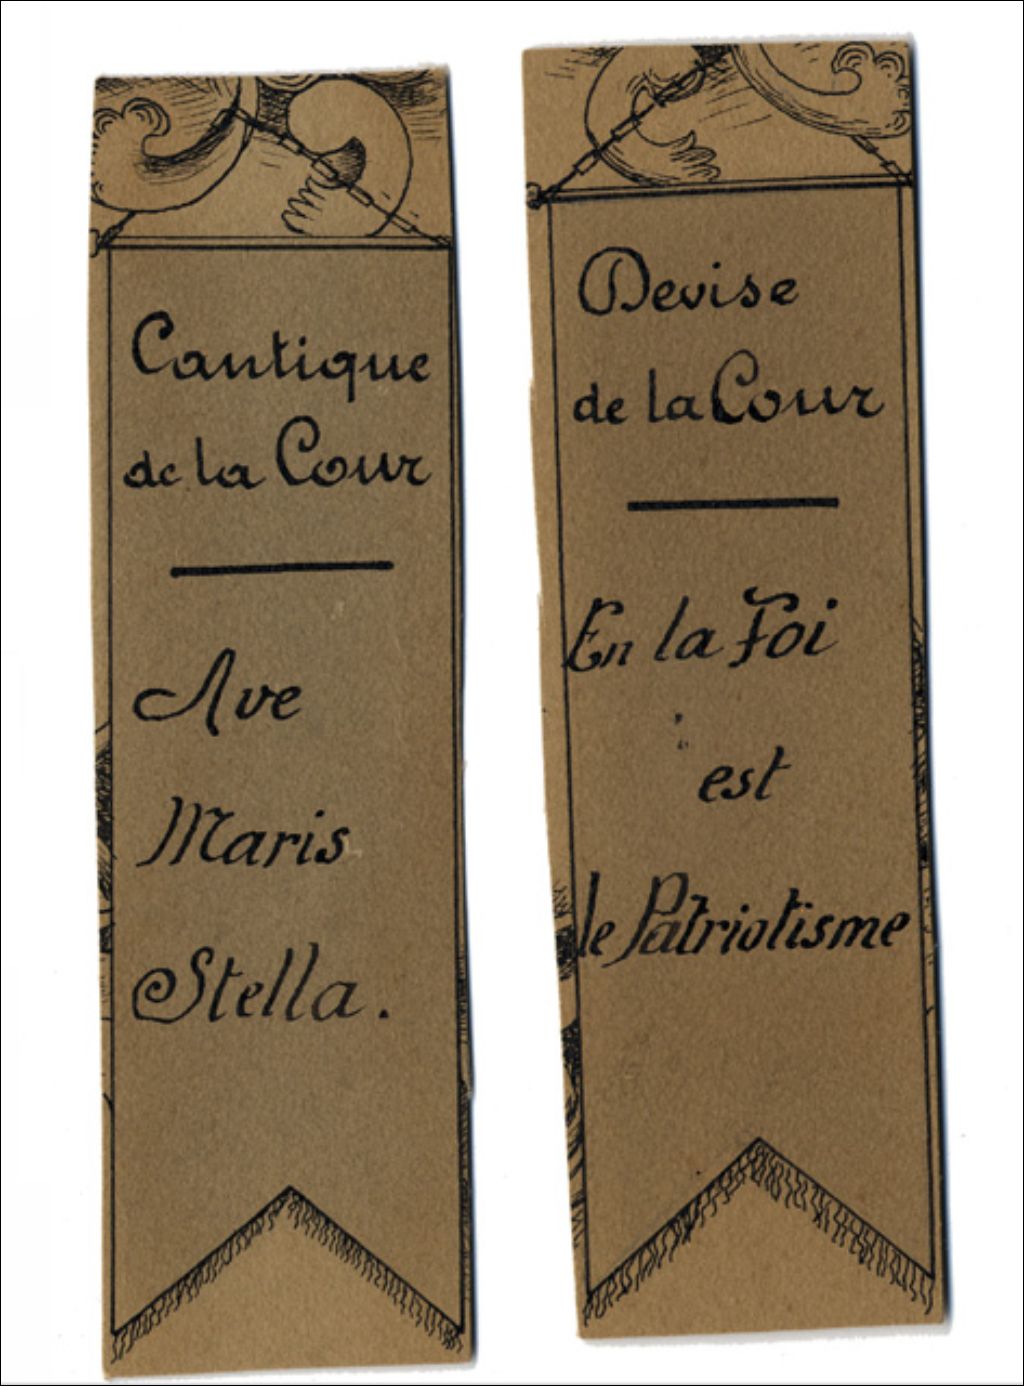 Cantique
de la Cour
Ave
Maris
Stella.
Devise
de la Cour
En la Foi
est
le Patriotisme